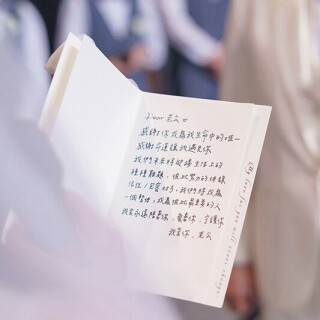 Dear 老公
感謝你成為我生命中的唯一
感謝命運讓我遇見你
我們未來將迎接生活上的
種種難題，彼此努力的
信任/忍耐包容，我們將成為
一個整體，成為彼此最重要的人
我會永遠陪著你、愛著你、守護你
我愛你，老公
(My love for you will never change)